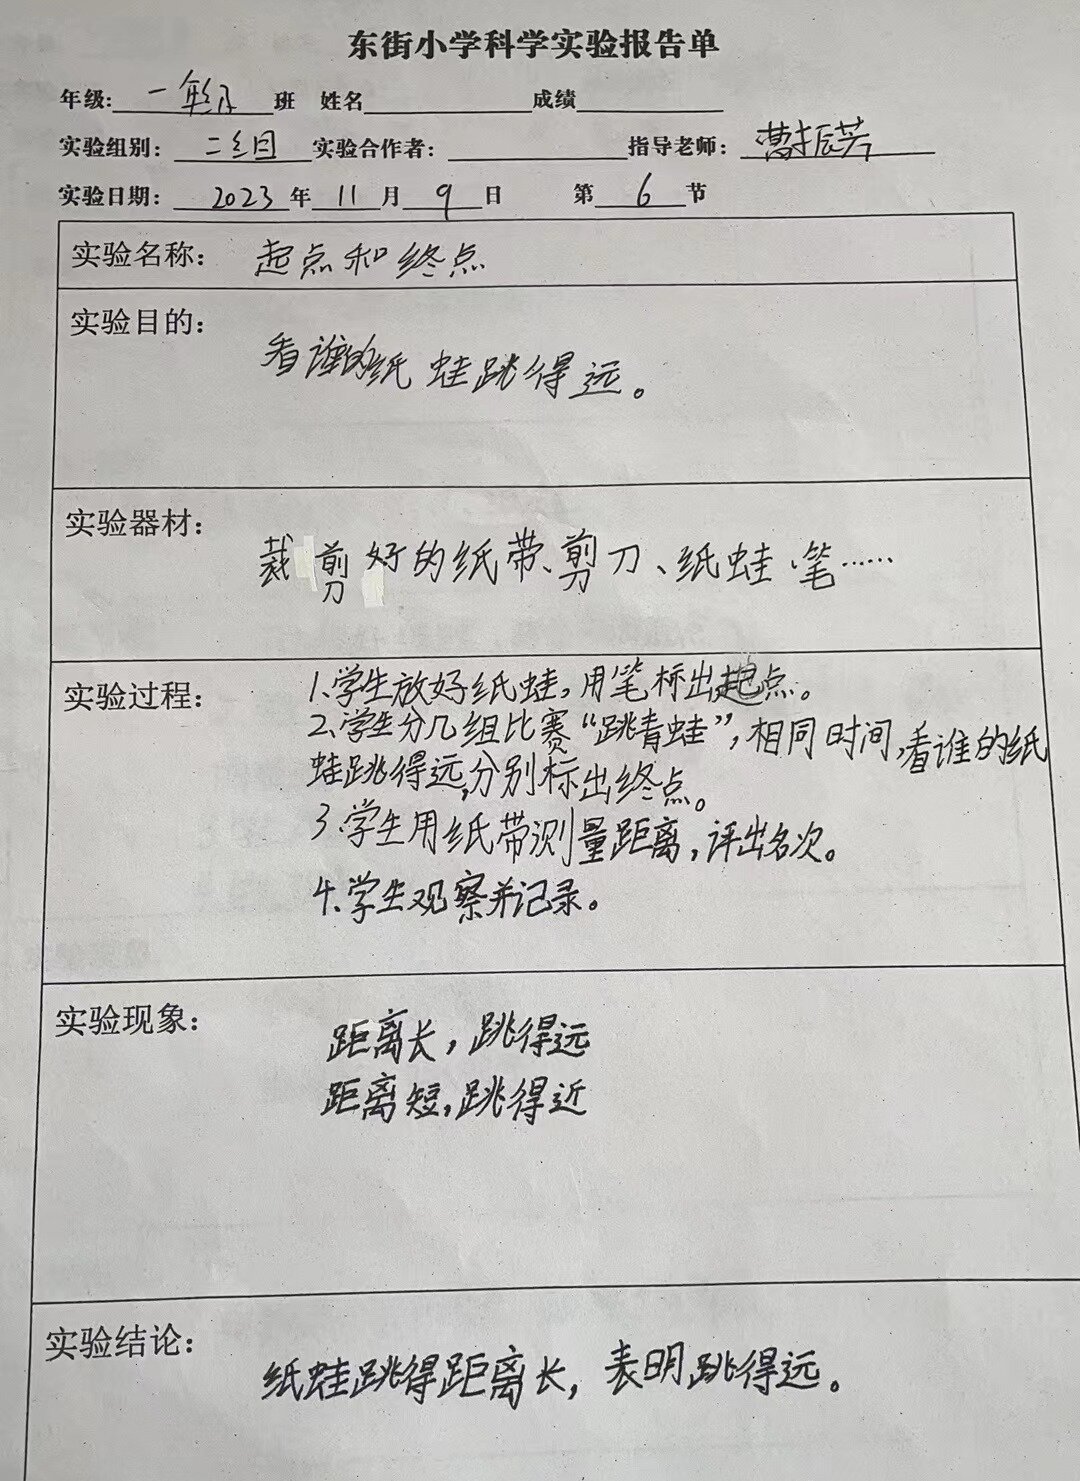 东街小学科学实验报告单
年级: 一年级 班 姓名 成绩
实验组别: 二组 实验合作者: 指导老师: 曹振芳
实验日期: 2023 年 11 月 9 日 第 6 节
实验名称: 起点和终点
实验目的:
看谁的纸蛙跳得远。
实验器材:
裁剪好的纸带、剪刀、纸蛙、笔……
实验过程:
1.学生放好纸蛙,用笔标出起点。
2.学生分几组比赛“跳青蛙”,相同时间,看谁的纸
蛙跳得远,分别标出终点。
3.学生用纸带测量距离,评出名次。
4.学生观察并记录。
实验现象:
距离长,跳得远
距离短,跳得近
实验结论:
纸蛙跳得距离长,表明跳得远。